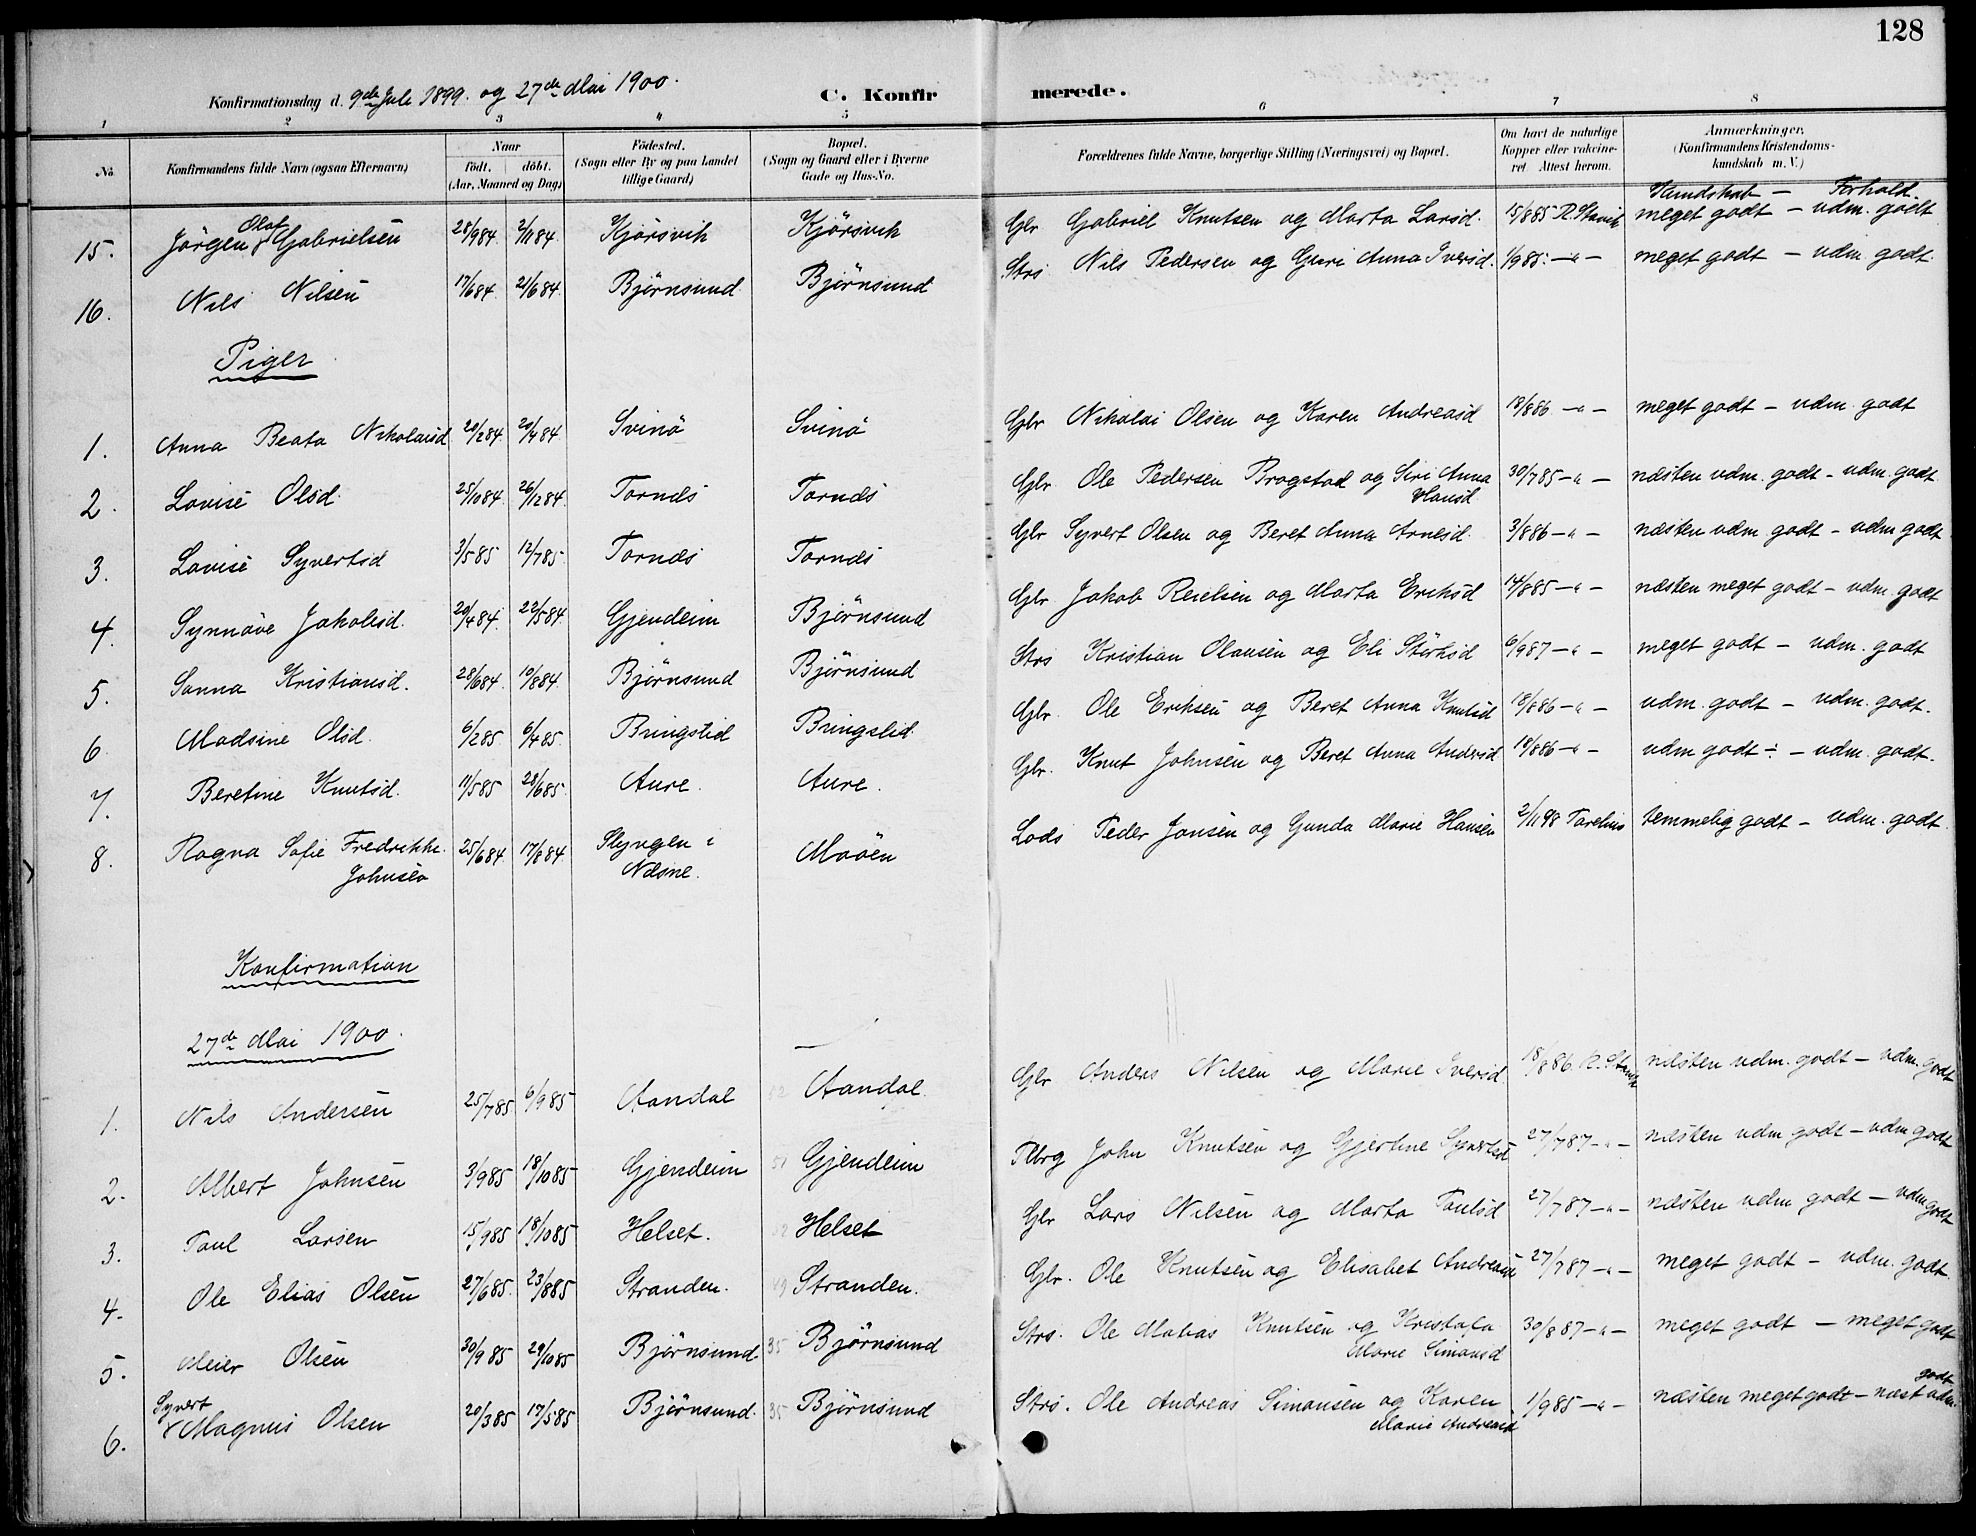 128
Konfirmationsdag d. 9de Juli 1899. og 27de Mai 1900.
C. Konfir merede.
1 2 3 4 5 6 7 8
No. Konfirmandens fulde Navn (ogsaa Efternavn) Naar födt. döbt. (Aar, Maaned og Dag) Födested. (Sogn eller By og paa Landet tillige Gaard) Bopæl. (Sogn og Gaard eller i Byerne Gade og Hus-No. Forældrenes fulde Navne, borgerlige Stilling (Næringsvei) og Bopæl. Om havt de naturlige Kopper eller vakcineret. Attest herom. Anmærkninger, (Konfirmandens Kristendomskundskab m. V.)
Kundskab — Forhold.
15. Jörgen Olaf Gabrielsen 28/9 84. 2/11 84. Kjörsvik Kjörsvik Gbr Gabriel Knutsen og Marta Larsd. 15/8 85 R. Stavik meget godt — udm. godt
16. Nils Nilsen 17/6 84. 21/6 84. Björnsund Björnsund Strs Nils Pedersen og Guri Anna Iversd. 1/9 85. — " — meget godt — udm. godt.
Piger
1. Anna Beata Nikolaisd 20/2 84. 20/4 84. Svinö Svinö Gbr Nikolai Olsen og Karen Andreasd 18/8 86 — " — meget godt — udm. godt
2. Lovise Olsd. 25/10 84. 26/12 84. Tornæs Tornæs Gbr Ole Pedersen Brogstad og Siri Anna Hansd 30/7 85 — " — næsten udm. godt — udm. godt.
3. Lovise Syvertsd 3/5 85 12/7 85. Tornæs Tornæs Gbr Syvert Olsen og Beret Anna Arnesd. 3/8 86 — " — næsten udm. godt — udm. godt
4. Synnöve Jakobsd. 20/4 84. 22/5 84. Gjendeim Björnsund Gbr Jakob Reielsen og Marta Eriksd 14/8 85 — " — næsten meget godt — udm. godt
5. Sanna Kristiansd. 28/6 84. 10/8 84. Björnsund Björnsund Strs Kristian Olausen og Eli Störksd 6/9 87 — " — meget godt — udm. godt
6. Madsine Olsd. 6/2 85. 6/4 85. Bringslid Bringslid. Gbr. Ole Eriksen og Beret Anna Knutsd 18/8 86 — " — udm. godt — udm. godt.
7. Beretine Knutsd. 11/5 85 28/6 85. Aure. Aure. Gbr. Knut Johnsen og Beret Anna Andersd 18/8 86 — " — udm godt ÷ — udm. godt.
8. Ragna Sofie Fredrikke Johnsen 25/6 84. 17/8 84. Slyngen i Næsne. Moöen Lods Peder Jonsen og Gunda Marie Hansen 2/11 98 temmelig godt — udm. godt.
Konfirmation
27de Mai 1900.
1. Nils Andersen 25/7 85. 6/9 85 Aandal 52 Aandal. Gbr Anders Nilsen og Marie Iversd 18/8 86. næsten udm. godt — udm. godt
2. Albert Johnsen 3/9 85 18/10 85 Gjendeim 51 Gjendeim Flbrg John Knutsen og Gjertine Syvertsd 27/7 87 — " — næsten udm godt — udm godt
3. Paul Larsen 15/9 85 18/10 85 Helset. 52 Helset Gbr Lars Nilsen og Marta Paulsd 27/7 87 — " — næsten udm godt — udm godt
4. Ole Elias Olsen 27/6 85. 23/8 85 Stranden. 49 Stranden. Gbr. Ole Knutsen og Elisabet Andreasd 27/7 87 — " — meget godt — udm. godt.
5. Meier Olsen 30/9 85 29/10 85 Björnsund 35 Björnsund Strs. Ole Matias Knutsen og Kristofa Marie Simonsd 30/8 87 — " — meget godt — meget godt
6. Syvert Magnus Olsen 20/3 85 17/5 85 Björnsund. 35 Björnsund Strs. Ole Andreas Simonsen og Karen Marie Andreasd 1/9 85 — " — næsten meget godt — næst udm. godt